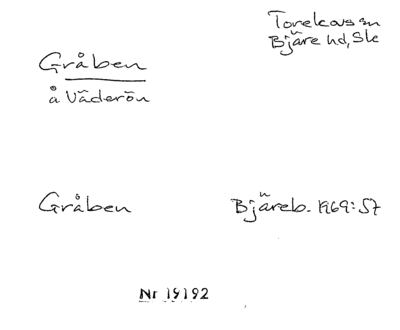 Torekovs sn
Bjäre hd, Sk
Gråben
å Väderön
Gråben
Bjäreb. 1969: 57
Nr 19192